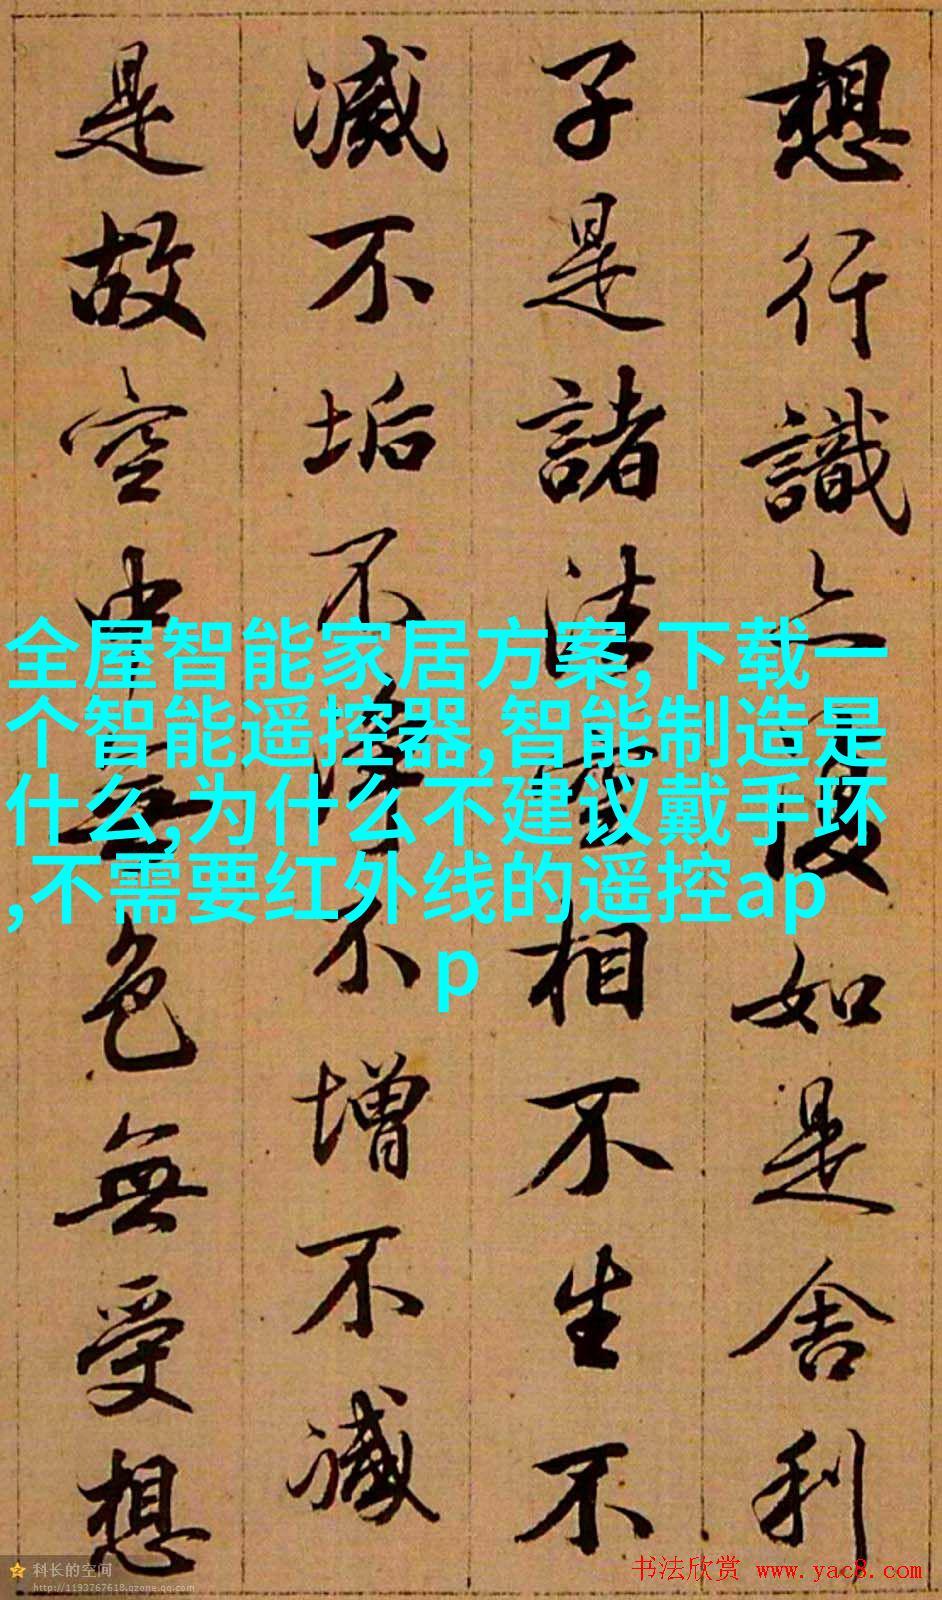 想行識亦復如是舍利
子是諸法空相不生不
滅不垢不淨不增不減
是故空中無色無受想
全屋智能家居方案,下载一
个智能遥控器,智能制造是
什么,为什么不建议戴手环
,不需要红外线的遥控ap
p
科长的空间
http://1193767618.qzone.qq.com
书法欣赏 www.yac8.com